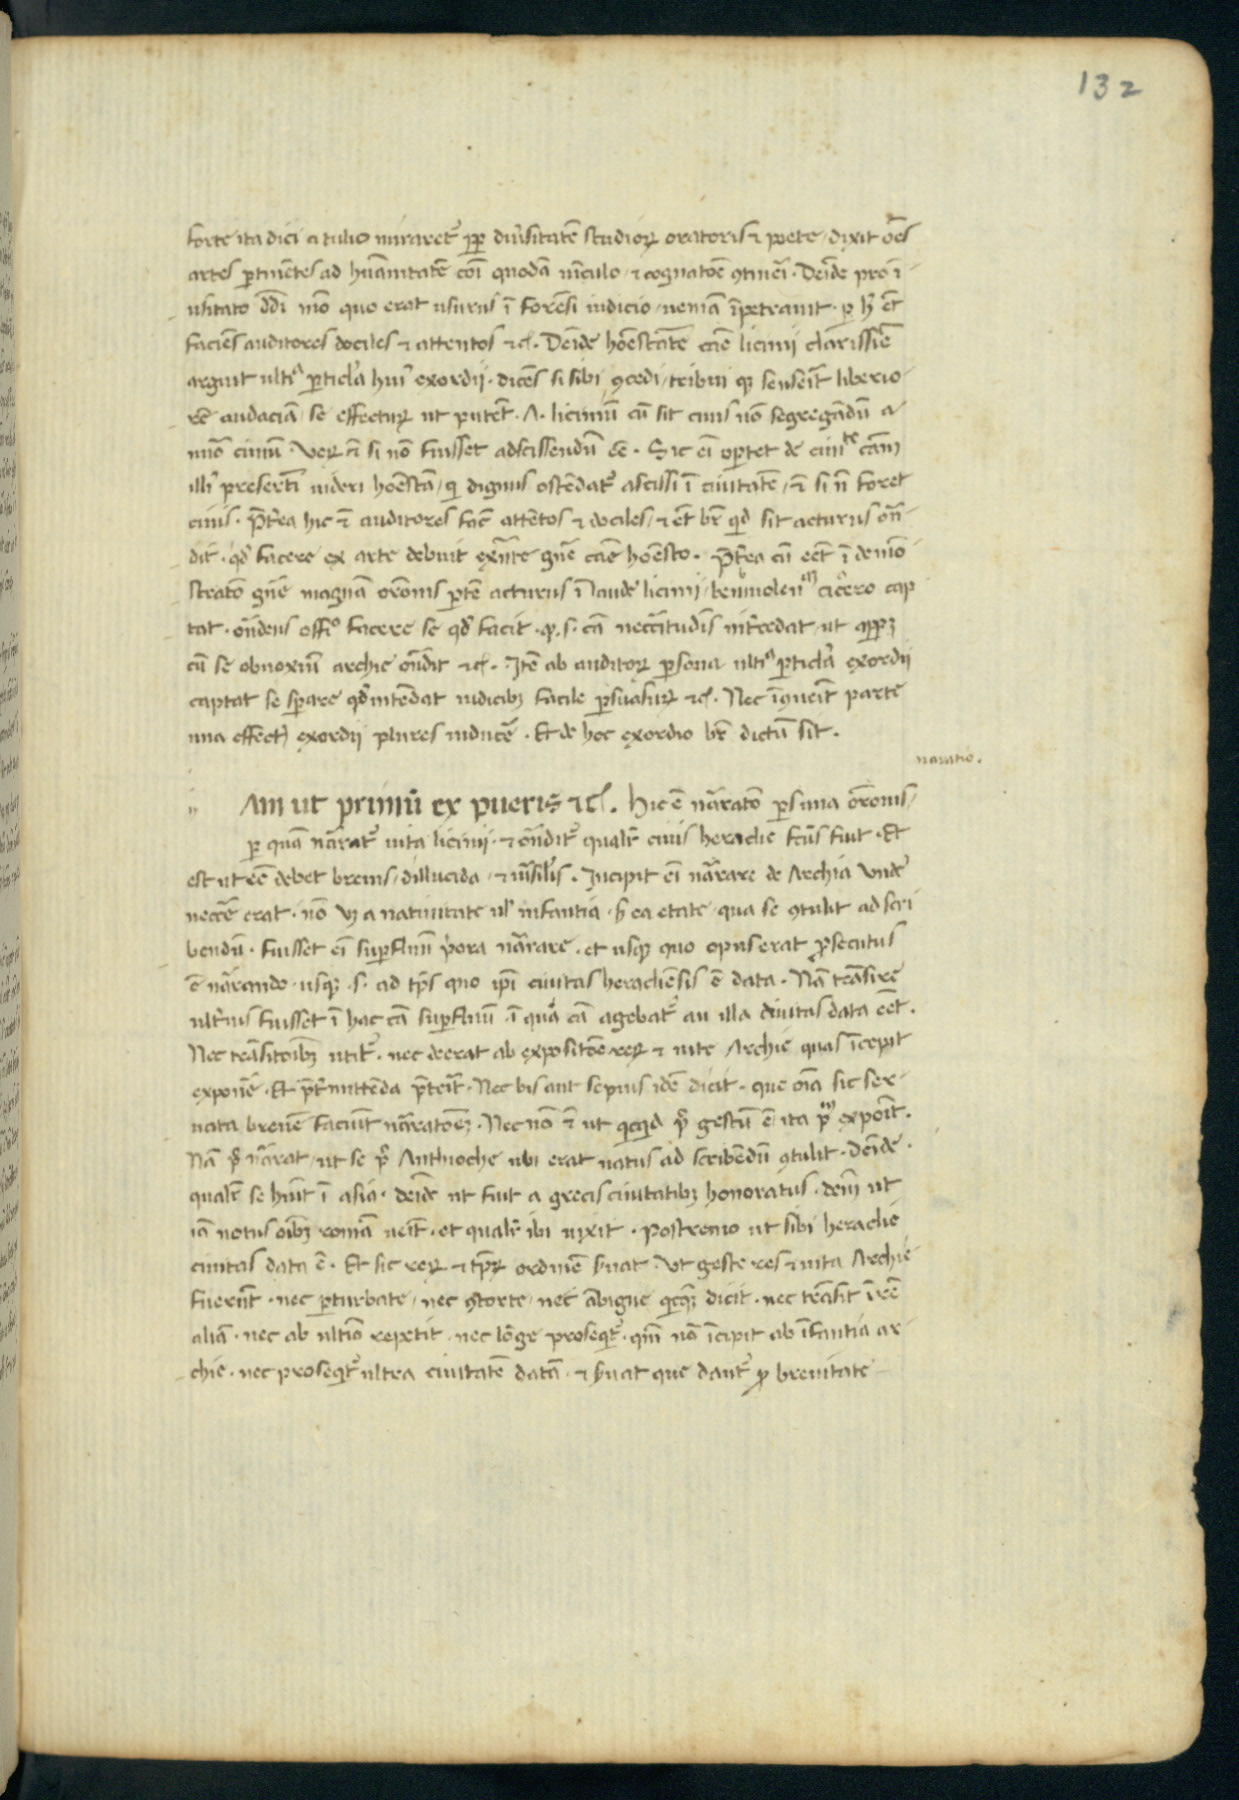 132
forte ita dici a tulio miraret᷑ ꝓpṫ diu᷑sitatē studioꝝ oratoris ⁊ poete / dixit oēs
artes ꝑtinētes ad hūanitatē coī quodā uīculo / ⁊ cognatōe ꝯtineri. Deīde pro ī
usitato dd̄i mō quo erat usurus ī forēsi iudicio / ueniā īpetrauit. ꝑ h᷑ et̄
faciēs auditores dociles ⁊ attentos ⁊c. Deīde hōestatē cāe licinii clarissīe
arguit ultiᵃ ꝑticl̓a hui᷑ exordii. dicēs si sibi ꝯcedi / tribui qꝫ senseīt liberio
rē audaciā / se effecturꝝ ut putēt. A. liciniū cū sit ciuis nō segregādū a
nūo ciuiū. Veꝝ ⁊ si nō fuisset adscissendū ēe. Sic eī oꝑtet de ciuitᵗᵉ cām
illi᷑ presertī uideri hōestā / qi dignus ostēdat᷑ ascissi ī ciuitatē / ⁊ si n̄ foret
ciuis. P̄t᷑ea hic ⁊ auditores fac̄ attētos ⁊ dociles / ⁊ et̄ br̄ qd sit acturus on̄
dit. qd̓ facere ex arte debuit exn̄te gn̄e cāe hōesto. P̄t᷑ea cū eēt ī demō
stratō gn̄e magnā orōnis ꝑtē acturus ī laude licinii / beniuolenᵃᵐ cicero cap
tat. on̄dens offi᷑ facere se qd̓ facit. ꝓ. s. cā necc̄itudīs int᷑cedat / ut ꝓpꝫ
cū se obnoxiū archie on̄dit ⁊c. Itē ab auditoꝝ ꝑsona ultiᵃ ꝑticl̓a exordii
captat se sꝑare qd̓ intēdat iudicibꝫ facile ꝑsuasurꝝ ⁊c. Nec īꝯueīt parte
una effect᷑ exordii plures inducē. Et de hoc exordio br̄ dictū sit.
naratio.
Am ut primū ex pueris ⁊c. Hic ē nārato ꝑs una orōnis /
ꝑ quā nārat᷑ uita licinii. ⁊ on̄dit᷑ qualr̄ ciuis heraclie fc̄us fuit. Et
est ut eē debet breuis / dillucida / ⁊ uīsil̓is. Incipit eī nārare de Archia unde
necc̄e erat. nō uꝫ a natiuitate ul̓ infantia / s᷑ ea etate / qua se ꝯtulit ad scri
bendū. fuisset eī suꝑfluū p̓ora nārare. et usqꝫ quo opus erat ꝓsecutus
ē nārando. usqꝫ .s. ad tp̄s quo ip̄i ciuitas heracliēsis ē data. Nā trāsire
ult᷑ius fuisset ī hac cā suꝑfluū. ī qua cā agebat᷑ an illa ciuitas data eēt.
Nec trāsitōibꝫ utit᷑. nec deerat ab expositōe reꝝ ⁊ uite Archie quas īcepit
exponē. Et p̄t᷑mittēda p̄teīt. Nec bis aut sepius idē dicit. que oīa sic ser
uata breuē faciūt nāratōeꝫ. Nec nō ⁊ ut qcqd p̓ gestū ē / ita p̓ᵐ exponit.
Nā p̓ nārat / ut se p̓ Anthioche ubi erat natus ad scribēdū ꝯtulit. Deīde
qualr̄ se hūit ī asia. deīde ut fuit a grecis ciuitatibꝫ honoratus. demū ut
iā notus oībꝫ romā ueīt. et qualr̄ ibi uixit. Postremo ut sibi heraclie
ciuitas data ē. Et sic reꝝ ⁊ tp̄ꝝ ordinē s᷑uat. Ut geste res ⁊ uita Archie
fuerūt. nec ꝑturbate / nec ꝯtorte / nec ābigue qcqꝫ dicit. nec trāsit ī rē
aliā. nec ab ultīo repetit. nec lōge prosequit᷑. qm̄ nō īcipit ab īfantia ar
chie. nec prosequit᷑ ultra ciuitatē datā. ⁊ s᷑uat que dant᷑ ꝓ breuitate